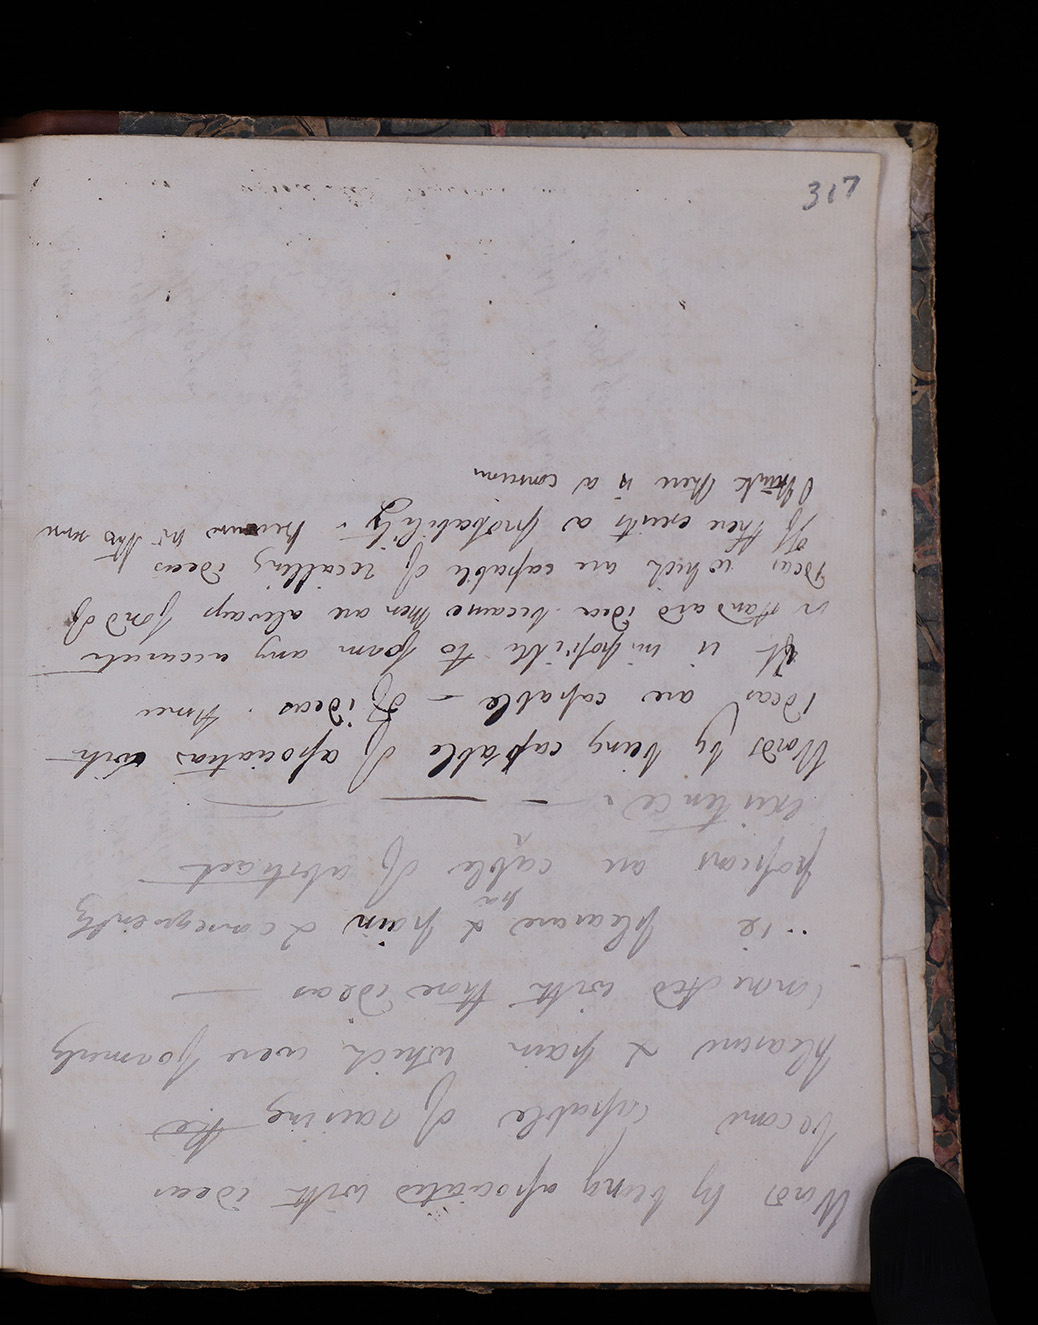 317
Words by being associated with ideas
become capable of raising the
pleasure & pain which were formerly
connected with those ideas —
ie pleasure & pain & consequently
pa
passions are cable of abstract
a
existence.
Words by being captable of association with
ideas are capable — of ideas. Hence
It is impossible to form any accurate
standard idea because Men are always fond of
Ideas which are capable of recalling ideas
If there exists a probability.
I think there is a